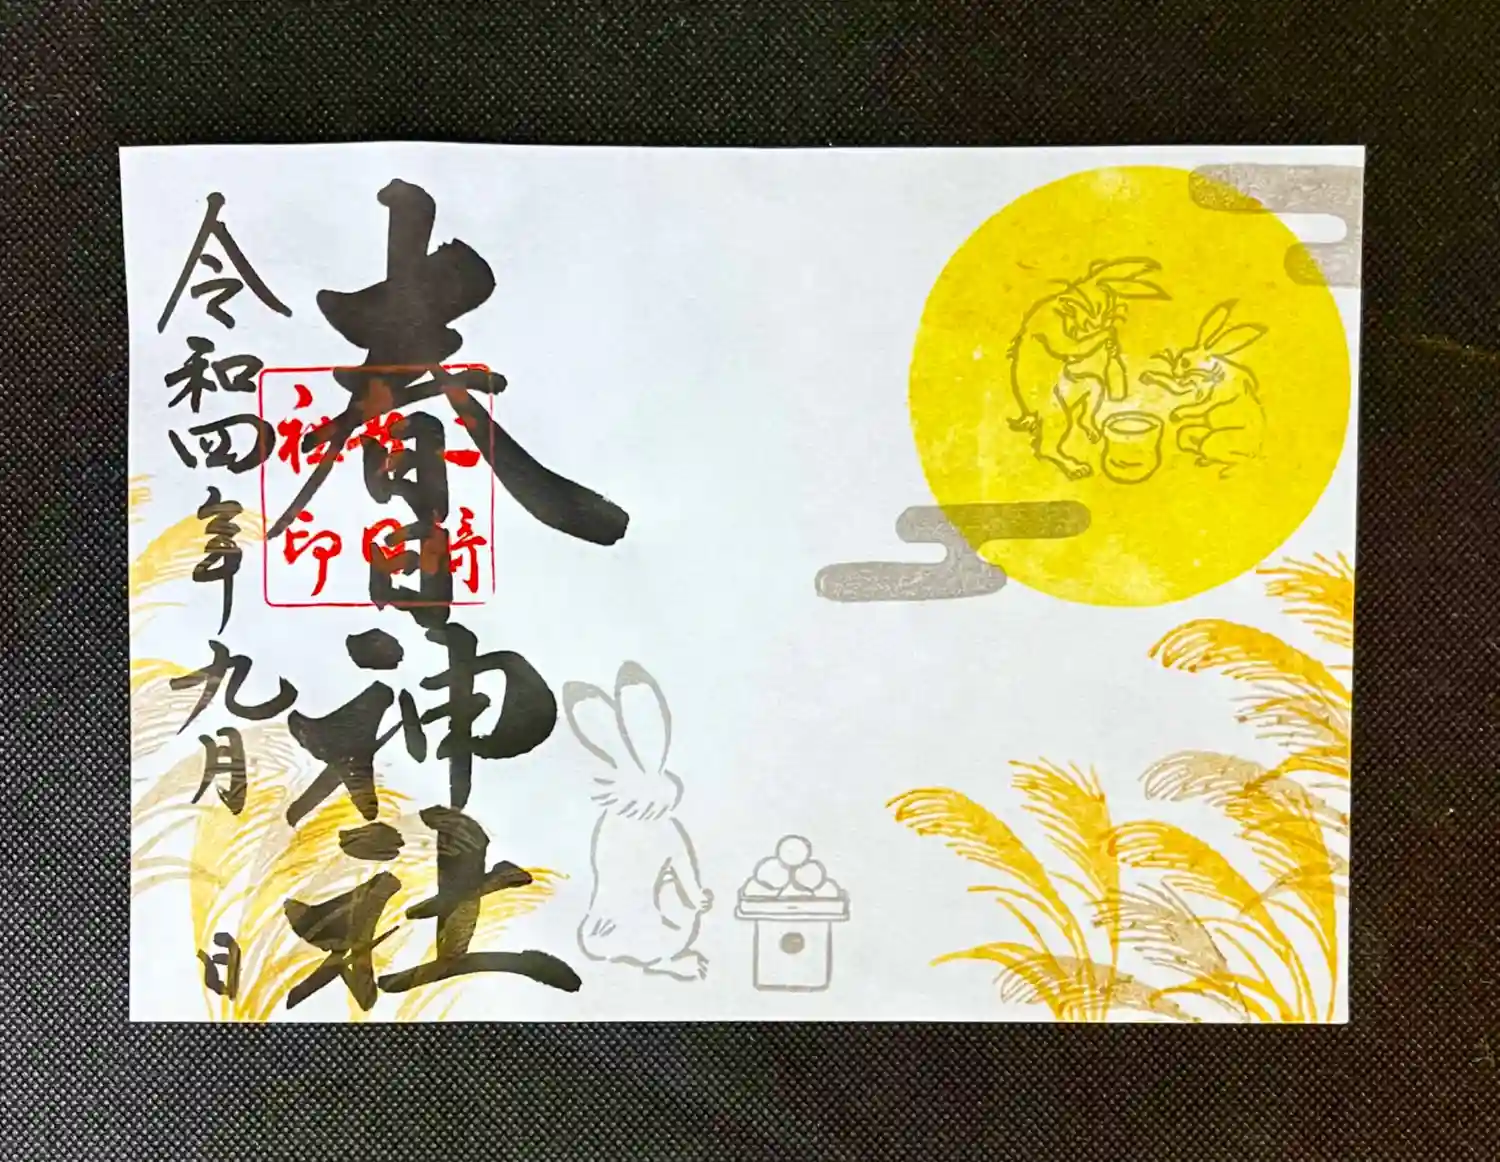 春日神社
崎
春日
社印
令和四年九月 日